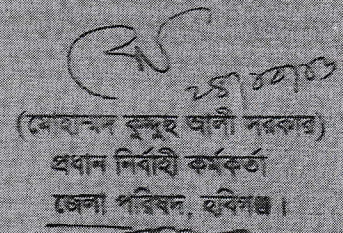 (মোহাম্মদ নুরুল আলী সরকার)
প্রধান নির্বাহী কর্মকর্তা
জেলা পরিষদ, হবিগঞ্জ।